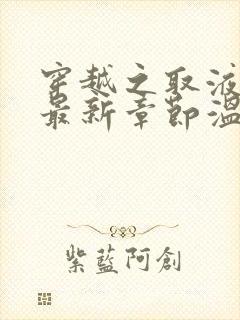 穿越之取液
最新章節溫
紫藍阿創